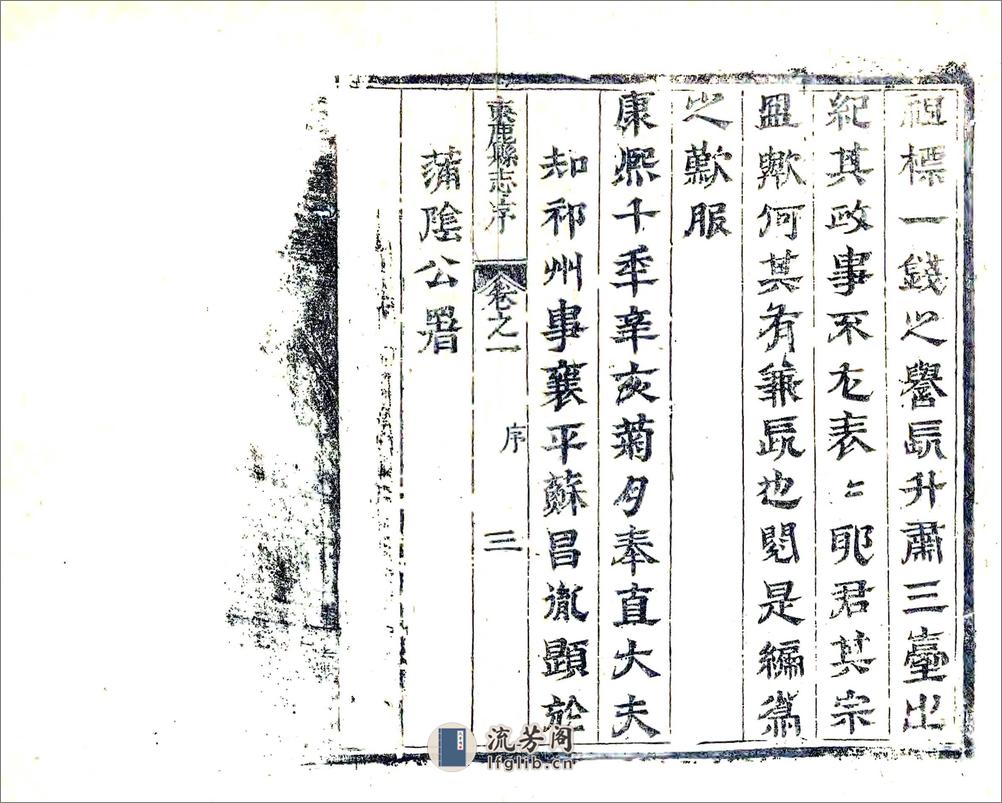 祖標一錢之譽辰升肅三臺出
紀其政事不尤表〻耶君其宗
盟歟何其有兼辰也閱是編為
之歎服
康熙十年辛亥菊月奉直大夫
知祁州事襄平蘇昌胤顕於
蒲陰公署
束鹿縣志序
卷之一
序
三
流芳阁
lfglib.cn